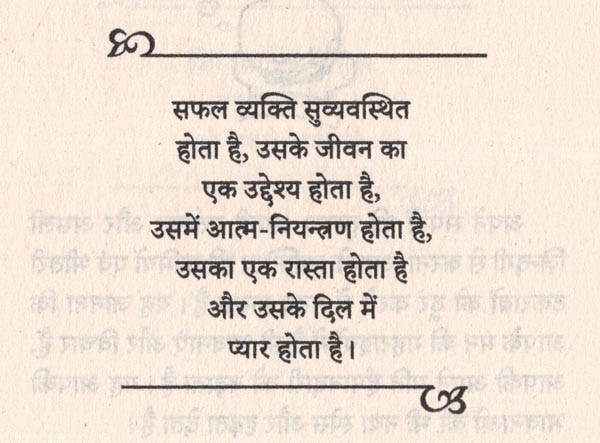 सफल व्यक्ति सुव्यवस्थित
होता है, उसके जीवन का
एक उद्देश्य होता है,
उसमें आत्म-नियन्त्रण होता है,
उसका एक रास्ता होता है
और उसके दिल में
प्यार होता है।